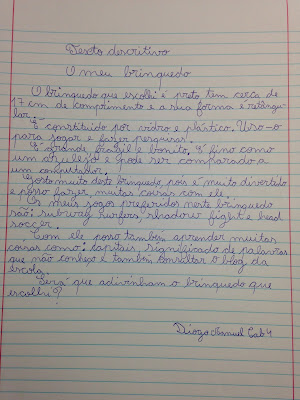 Texto descritivo
O meu brinquedo
O brinquedo que escolhi é preto, tem cerca de
17 cm de comprimento e a sua forma é retângu-
lar.
É constituído por vidro e plástico. Uso-o
para jogar e fazer pesquisas.
É grande, frágil e bonito. É fino como
um azulejo e pode ser comparado a
um computador.
Gosto muito deste brinquedo, pois é muito divertido
e posso fazer muitas coisas com ele.
Os meus jogos preferidos neste brinquedo
são: subway surfers, shadow fight e head
soccer.
Com ele posso também aprender muitas
coisas como: capitais, significado de palavras
que não conheço e também consultar o blog da
escola.
Será que adivinham o brinquedo que
escolhi?
Diogo Manuel